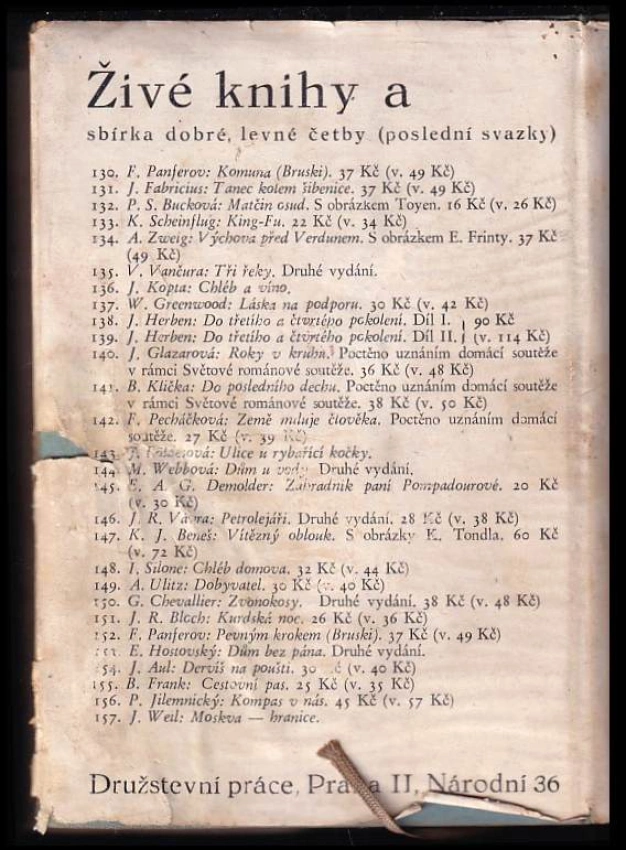 Živé knihy a
sbírka dobré, levné četby (poslední svazky)
130. F. Panferov: Komuna (Bruski). 37 Kč (v. 49 Kč)
131. J. Fabricius: Tanec kolem šibenice. 37 Kč (v. 49 Kč)
132. P. S. Bucková: Matčin osud. S obrázkem Toyen. 16 Kč (v. 26 Kč)
133. K. Scheinflug: King-Fu. 22 Kč (v. 34 Kč)
134. A. Zweig: Výchova před Verdunem. S obrázkem E. Frinty. 37 Kč
(49 Kč)
135. V. Vančura: Tři řeky. Druhé vydání.
136. J. Kopta: Chléb a víno.
137. W. Greenwood: Láska na podporu. 30 Kč (v. 42 Kč)
138. J. Herben: Do třetího a čtvrtého pokolení. Díl I. } 90 Kč
139. J. Herben: Do třetího a čtvrtého pokolení. Díl II. } (v. 114 Kč)
140. J. Glazarová: Roky v kruhu. Poctěno uznáním domácí soutěže
v rámci Světové románové soutěže. 36 Kč (v. 48 Kč)
141. B. Klička: Do posledního dechu. Poctěno uznáním domácí soutěže
v rámci Světové románové soutěže. 38 Kč (v. 50 Kč)
142. F. Pecháčková: Země miluje člověka. Poctěno uznáním domácí
soutěže. 27 Kč (v. 39 Kč)
143. J. Ulice u rybařící kočky.
144. M. Webbová: Dům u vody. Druhé vydání.
145. E. A. G. Demolder: Zahradník paní Pompadourové. 20 Kč
(v. 30 Kč)
146. J. R. Vávra: Petrolejáři. Druhé vydání. 28 Kč (v. 38 Kč)
147. K. J. Beneš: Vítězný oblouk. S obrázky K. Tondla. 60 Kč
(v. 72 Kč)
148. I. Silone: Chléb domova. 32 Kč (v. 44 Kč)
149. A. Ulitz: Dobyvatel. 30 Kč (v. 40 Kč)
150. G. Chevallier: Zvonokosy. Druhé vydání. 38 Kč (v. 48 Kč)
151. J. R. Bloch: Kurdská noc. 26 Kč (v. 36 Kč)
152. F. Panferov: Pevným krokem (Bruski). 37 Kč (v. 49 Kč)
153. E. Hostovský: Dům bez pána. Druhé vydání.
154. J. Aul: Derviš na poušti. 30 Kč (v. 40 Kč)
155. B. Frank: Cestovní pas. 25 Kč (v. 35 Kč)
156. P. Jilemnický: Kompas v nás. 45 Kč (v. 57 Kč)
157. J. Weil: Moskva — hranice.
Družstevní práce, Praha II, Národní 36